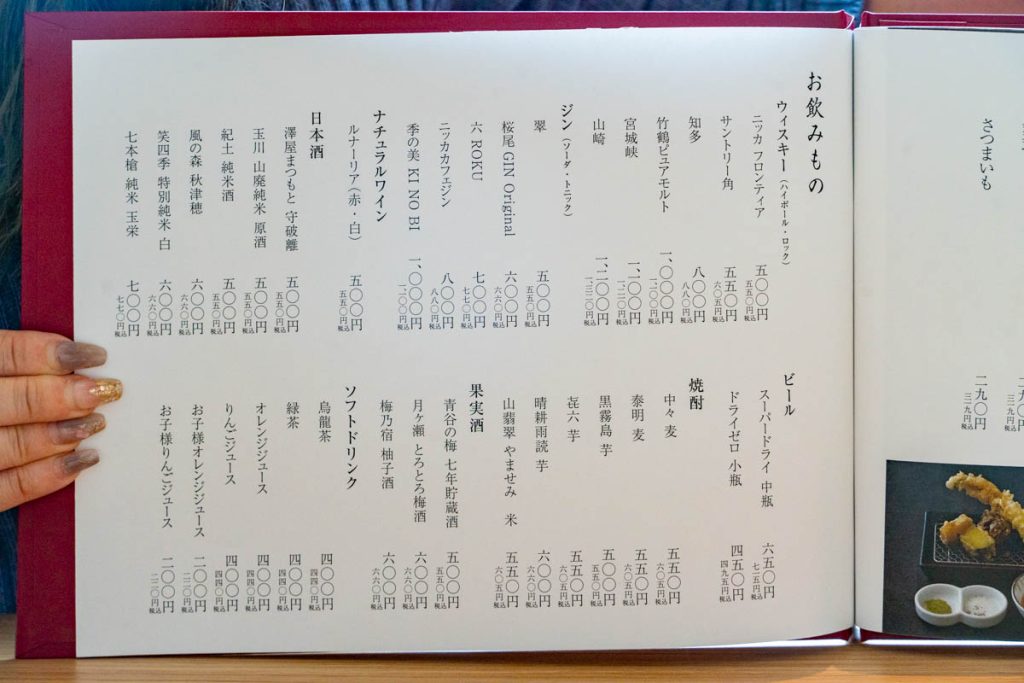 さつまいも
二九〇円
三一九円税込
お飲みもの
ウィスキー（ハイボール・ロック）
ニッカ フロンティア 五〇〇円
五五〇円税込
サントリー角 五五〇円
六〇五円税込
知多 八〇〇円
八八〇円税込
竹鶴ピュアモルト 一、〇〇〇円
一、一〇〇円税込
宮城峡 一、一〇〇円
一、二一〇円税込
山崎 一、二〇〇円
一、三二〇円税込
ジン（ソーダ・トニック）
翠 五〇〇円
五五〇円税込
桜尾 GIN Original 六〇〇円
六六〇円税込
六 ROKU 七〇〇円
七七〇円税込
ニッカカフェジン 八〇〇円
八八〇円税込
季の美 KI NO BI 一、〇〇〇円
一、一〇〇円税込
ナチュラルワイン
ルナーリア（赤・白） 五〇〇円
五五〇円税込
日本酒
澤屋まつもと 守破離 五〇〇円
五五〇円税込
玉川 山廃純米 原酒 五〇〇円
五五〇円税込
紀土 純米酒 五〇〇円
五五〇円税込
風の森 秋津穂 六〇〇円
六六〇円税込
笑四季 特別純米 白 六〇〇円
六六〇円税込
七本槍 純米 玉栄 七〇〇円
七七〇円税込
ビール
スーパードライ 中瓶 六五〇円
七一五円税込
ドライゼロ 小瓶 四五〇円
四九五円税込
焼酎
中々 麦 五五〇円
六〇五円税込
泰明 麦 五五〇円
六〇五円税込
黒霧島 芋 五〇〇円
五五〇円税込
㐂六 芋 五五〇円
六〇五円税込
晴耕雨読 芋 六〇〇円
六六〇円税込
山翡翠 やませみ 米 五五〇円
六〇五円税込
果実酒
青谷の梅 七年貯蔵酒 五〇〇円
五五〇円税込
月ヶ瀬 とろとろ梅酒 六〇〇円
六六〇円税込
梅乃宿 柚子酒 六〇〇円
六六〇円税込
ソフトドリンク
烏龍茶 四〇〇円
四四〇円税込
緑茶 四〇〇円
四四〇円税込
オレンジジュース 四〇〇円
四四〇円税込
りんごジュース 四〇〇円
四四〇円税込
お子様オレンジジュース 二〇〇円
二二〇円税込
お子様りんごジュース 二〇〇円
二二〇円税込